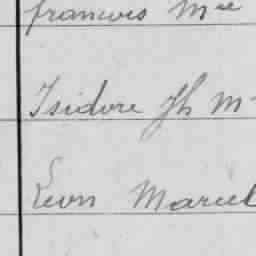 francois Mie
Isidore Jh M
Léon Marcel